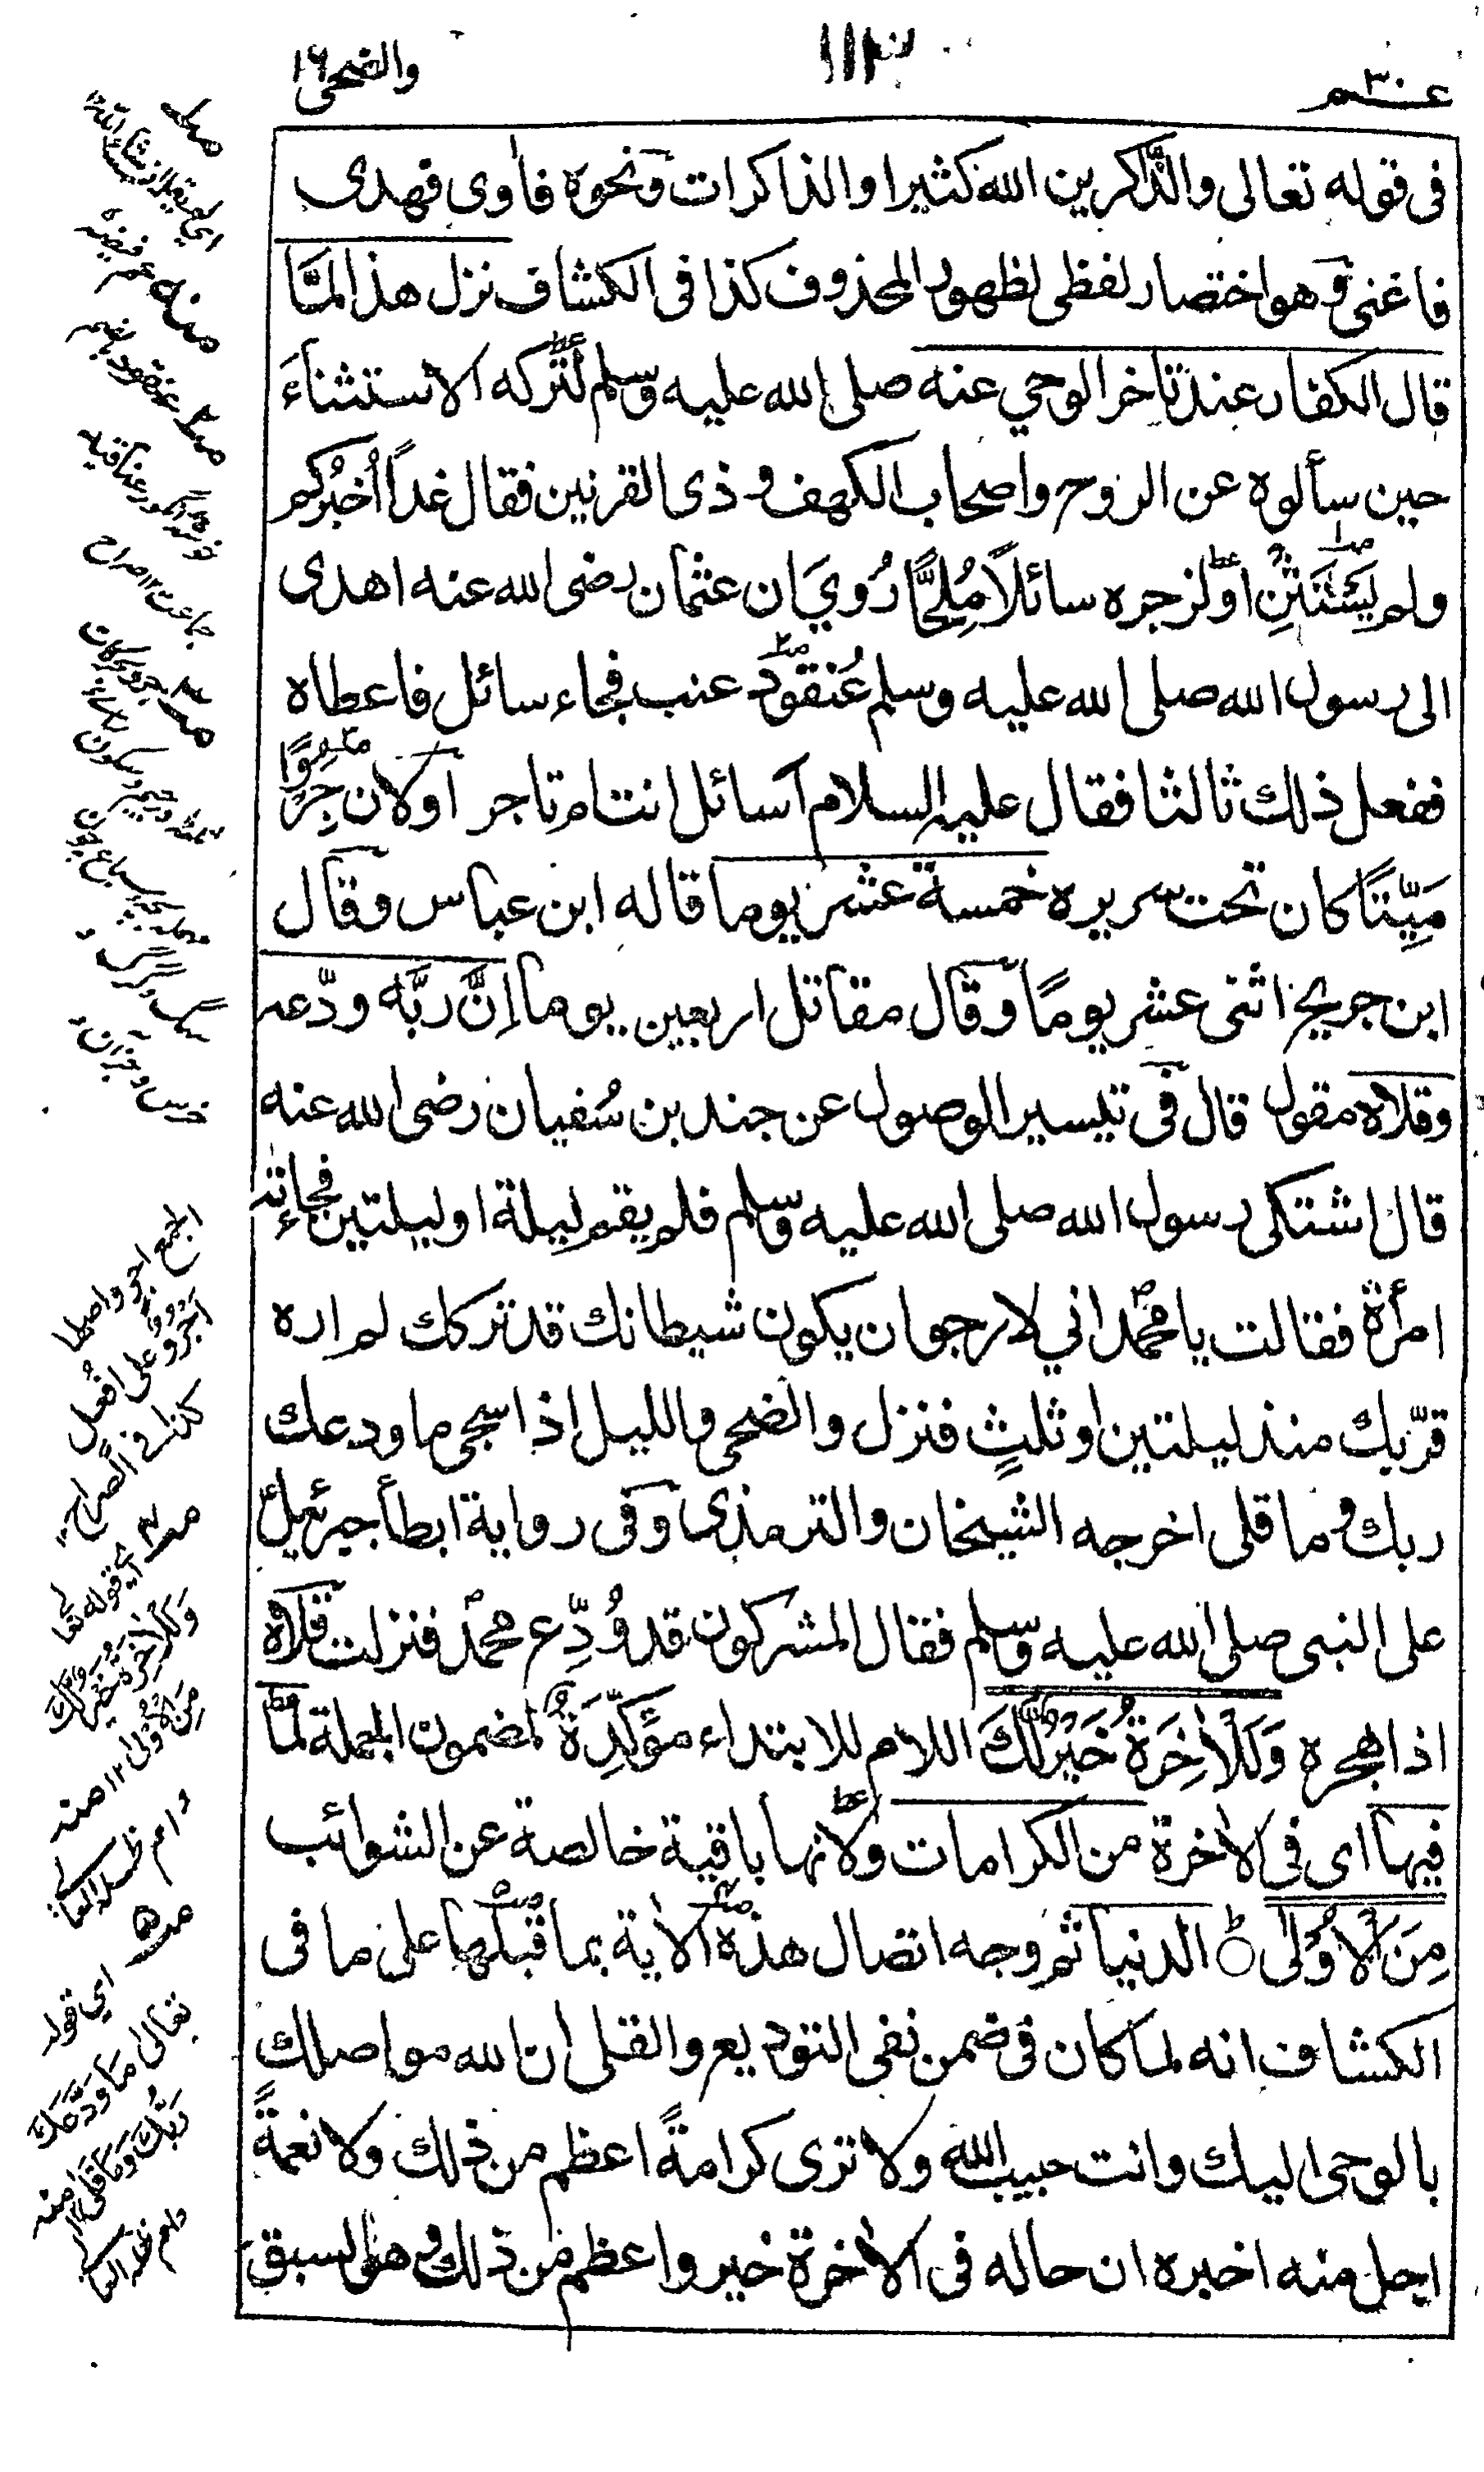 عم ٣٠
١١١٣
والضحى
فى قوله تعالى والذّاكرين الله كثيرا والذاكرات ونحوه فأوى فهدى
فاغنى وهو اختصار لفظى لظهور المحذوف كذا فى الكشاف نزل هذا لمّا
قال الكفار عند تاخر الوحي عنه صلى الله عليه وسلم لتركه الاستثناءَ
حين سألوه عن الروح واصحاب الكهف وذى القرنين فقال غدًا اُخبرُكم
ولم يَسْتَثْنِ اولزجره سائلًا مُلِحًّا رُوِيَ ان عثمان رضى الله عنه اهدى
الى رسول الله صلى الله عليه وسلم عُنقودَ عنب فجاء سائل فاعطاه
ففعل ذلك ثالثا فقال عليه السلام آسائل انت ام تاجر اولان جِرْوًا
مَيِّتًا كان تحت سريره خمسة عشر يوما قاله ابن عباس وقال
ابن جريج اثنى عشر يومًا وقال مقاتل اربعين يوما اِنَّ ربَّه ودّعه
وقلاه مقول قال فى تيسير الوصول عن جندب بن سُفيان رضى الله عنه
قال اشتكى رسول الله صلى الله عليه وسلم فلم يقم ليلة او ليلتين فجاءته
امرأة فقالت يا محمد اني لارجو ان يكون شيطانك قد تركك لم اره
قرّبك منذ ليلتين او ثلثٍ فنزل والضحى والليل اذا سجى ما ودعك
ربك وما قلى اخرجه الشيخان والترمذى وفى رواية ابطأ جبرئيل
على النبى صلى الله عليه وسلم فقال المشركون قد وُدِّع محمد فنزلت قلاه
اذا هجره وَلَلْاٰخِرَةُ خَيْرٌ لَّكَ اللام للابتداء مؤكِّدَةٌ لمضمون الجملة لمَّا
فيها اى فى الاخرة من الكرامات ولانها باقية خالصة عن الشوائب
مِنَ الْاُوْلٰى ط الدنيا ثم وجه اتصال هذه الاٰية بما قبلها على ما فى
الكشاف انه لما كان فى ضمن نفى التوديع والقلى ان الله مواصلك
بالوحى اليك وانت حبيب الله ولا ترى كرامةً اعظم من ذلك ولا نعمةً
اجل منه اخبره ان حاله فى الاٰخرة خير واعظم من ذلك وهو السبق
الجمع اجر واصلها
اَجْرُوٌ على افْعُل
كذا فى الصراح
اى قوله تعا
وَلَلْاٰخِرَةُ خَيْرٌ لَّكَ
مِنَ الْاُوْلٰى ١٢ منه
اي قوله
تعالى مَا وَدَّعَكَ
رَبُّكَ وَمَا قَلٰى ١٢ منه